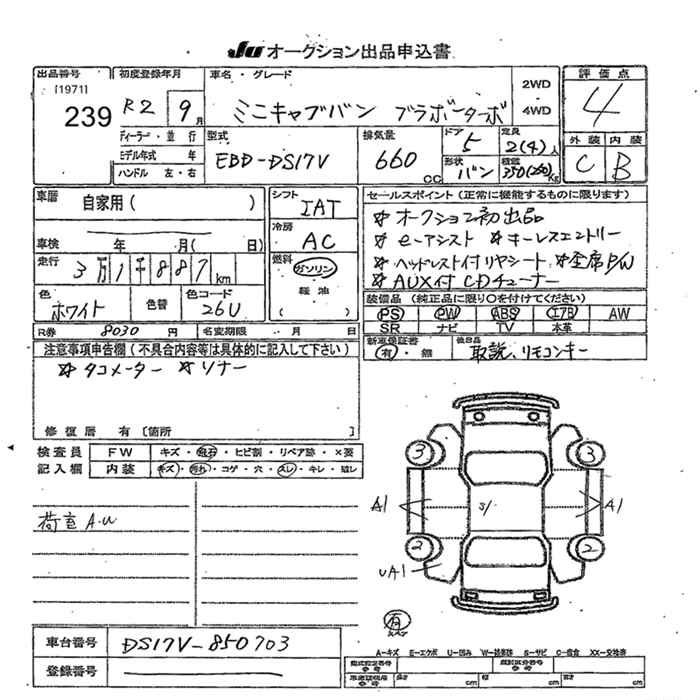 Ju オークション出品申込書
出品番号 [1971] 239
初度登録年月 R2 9月
車名・グレード ミニキャブバン ブラボーターボ
2WD ・ 4WD
評価点 4
外装 C 内装 B
ディーラー・並行
モデル年式 年
ハンドル 左・右
型式 EBD-DS17V
排気量 660 CC
ドア 5
定員 2(4)人
形状 バン
積載 350(250)Kg
車歴 自家用( )
車検 年 月( 日)
走行 3万1千887km
色 ホワイト 色替 色コード 26U
シフト IAT
冷房 AC
燃料 ガソリン・軽油 ( )
セールスポイント(正常に機能するものに限ります)
☆オークション初出品
☆e-アシスト ☆キーレスエントリー
☆ヘッドレスト付リヤシート ☆全席P/W
☆AUX付CDチューナー
装備品(純正品に限り○を付けてください)
PS PW ABS エアB AW
SR ナビ TV 本革
R券 8030円 名変期限 月 日
新車保証書 有・無
後日品 取説、リモコンキー
注意事項申告欄(不具合内容等は具体的に記入して下さい)
☆タコメーター ☆ソナー
修復歴 有 [箇所 ]
検査員 FW キズ・飛石・ヒビ割・リペア跡・×要
記入欄 内装 キズ・汚れ・コゲ・穴・スレ・キレ・破レ
荷室 A.U
3 3
A1 S/ A1
2 2
UA1
有
車台番号 DS17V-850703
登録番号
A−キズ E−エクボ U−凹み W−補修跡 S−サビ C−腐食 XX−交換済
型式指定番号 類別区分番号
長さ cm 幅 cm 高さ cm